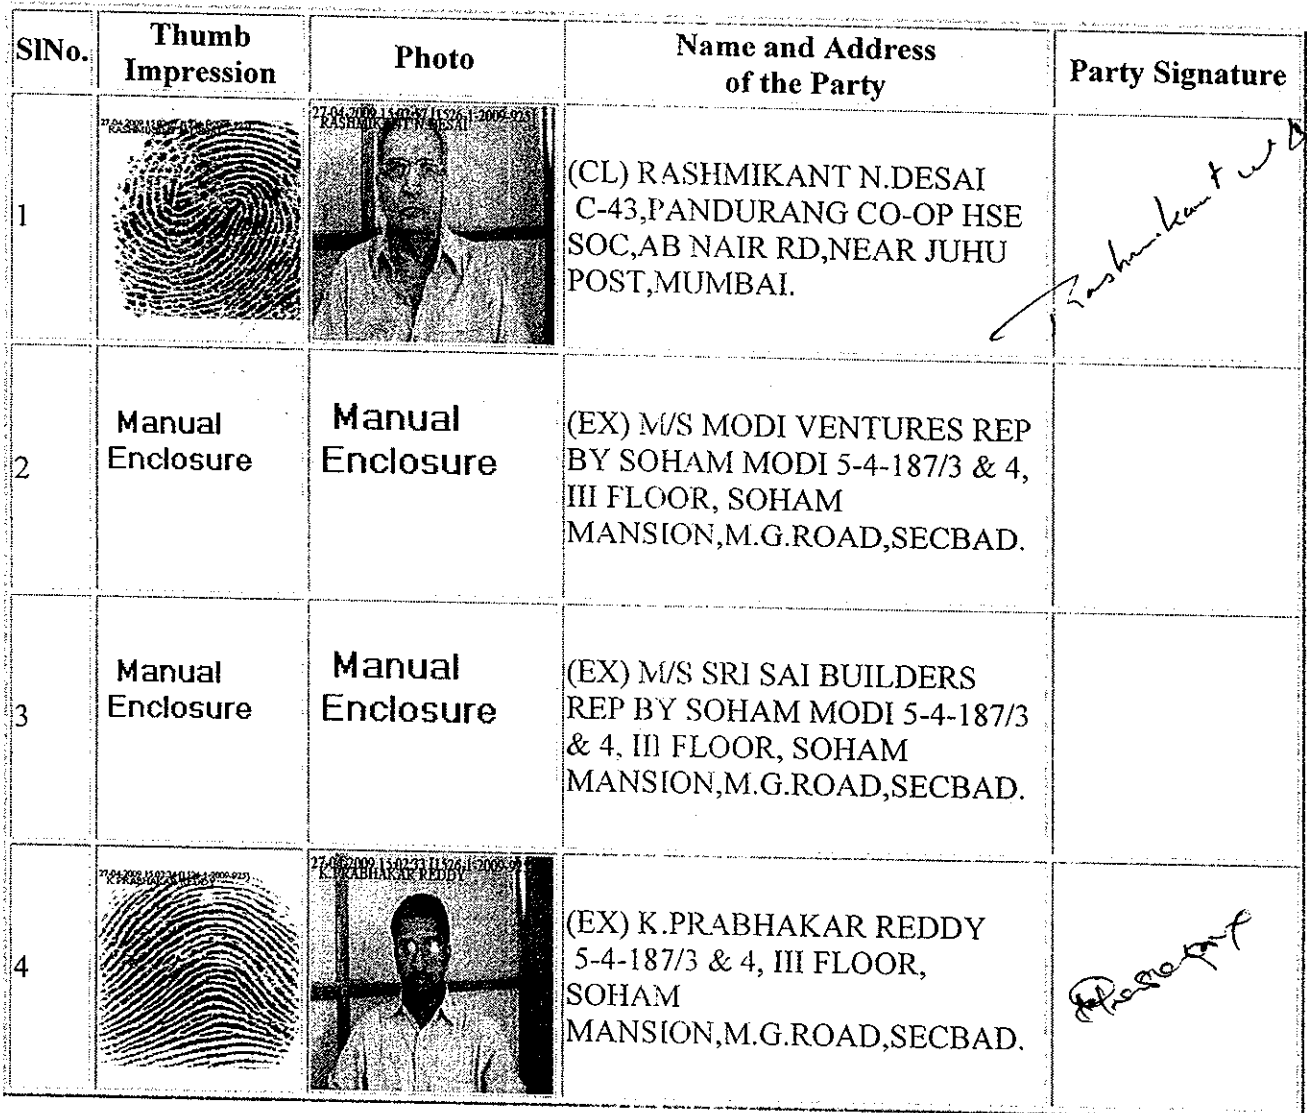 SlNo.
Thumb
Impression
Photo
Name and Address
of the Party
Party Signature
1
RASHMIKANT N.DESAI
27-04-2009 15:02:57 [1526-1-2009-925]
RASHMIKANT N.DESAI
(CL) RASHMIKANT N.DESAI
C-43,PANDURANG CO-OP HSE
SOC,AB NAIR RD,NEAR JUHU
POST,MUMBAI.
Rashmikant
2
Manual
Enclosure
Manual
Enclosure
(EX) M/S MODI VENTURES REP
BY SOHAM MODI 5-4-187/3 & 4,
III FLOOR, SOHAM
MANSION,M.G.ROAD,SECBAD.
3
Manual
Enclosure
Manual
Enclosure
(EX) M/S SRI SAI BUILDERS
REP BY SOHAM MODI 5-4-187/3
& 4, III FLOOR, SOHAM
MANSION,M.G.ROAD,SECBAD.
4
K.PRABHAKAR REDDY
27-04-2009 15:02:33 [1526-1-2009-925]
K.PRABHAKAR REDDY
(EX) K.PRABHAKAR REDDY
5-4-187/3 & 4, III FLOOR,
SOHAM
MANSION,M.G.ROAD,SECBAD.